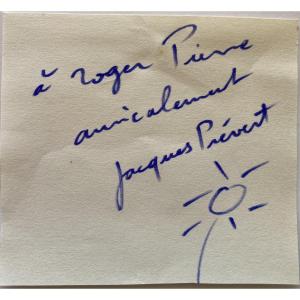 à Roger Pierre
amicalement
Jacques Prévert